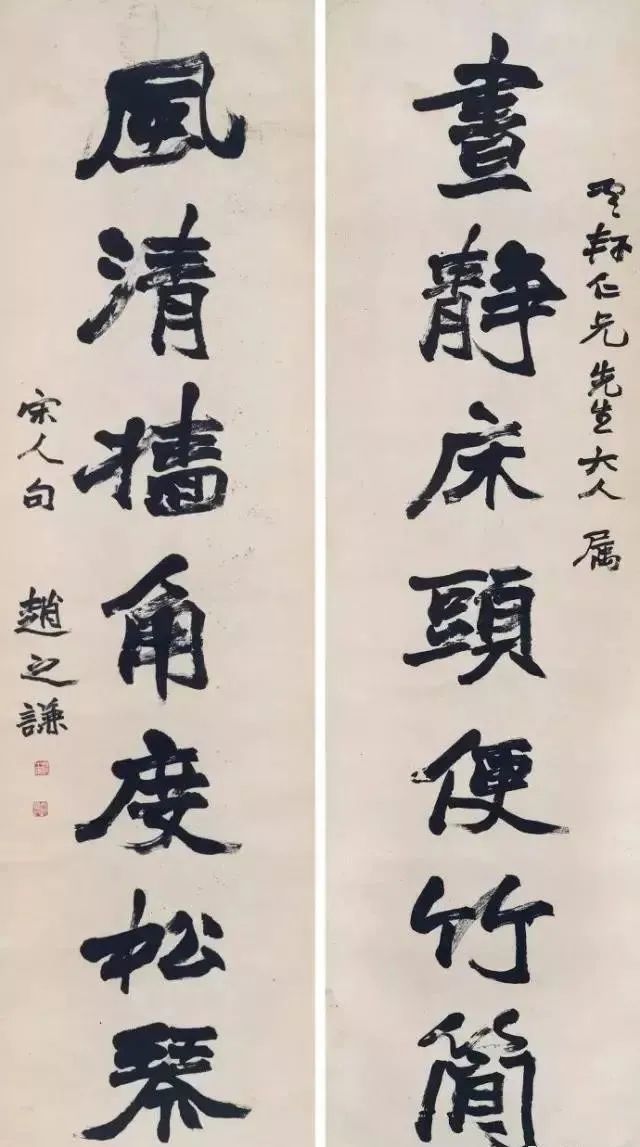 仁兄先生大人属
晝靜床頭便竹簡
風清牆角度松琴
宋人句 趙之謙